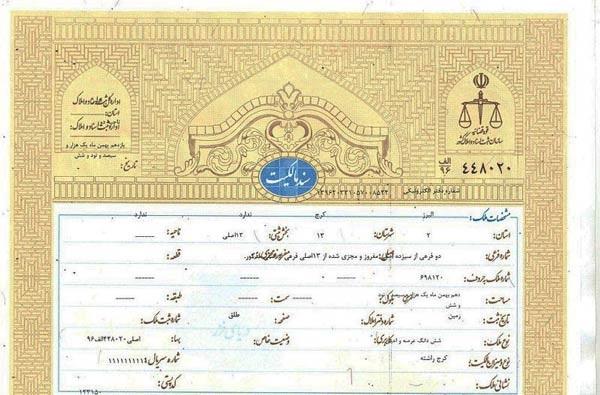 قوه قضائیه
سازمان ثبت اسناد و املاک کشور
الف
۹۶
۴۴۸۰۲۰
اداره کل ثبت اسناد و املاک
استان:
اداره ثبت اسناد و املاک:
یازدهم بهمن ماه یک هزار و
سیصد و نود و شش
تاریخ:
سند مالکیت
شماره دفتر الکترونیکی:
مشخصات ملک:
البرز کرج ندارد ندارد
استان: ۲ شهرستان: ۱۳ بخش ثبتی: ۱۳اصلی ناحیه: -----
شماره فرعی: دو فرعی از سیزده مفروز و مجزی شده از ۱۳اصلی فرعی قطعه:
شماره ملک به حروف: ۶۹۸۱۲۰ -----
مساحت: دهم بهمن ماه یک هزار و سیصد و نود و شش سمت: ----- طبقه: -----
تاریخ ثبت: زمین شماره دفتر املاک: صفحه: طلق شماره ثبت ملک:
نوع ملک: شش دانگ عرصه و وضعیت خاص: بها: اصلی ۴۴۸۰۲۰الف۹۶
نوع و میزان مالکیت: کرج راشته شماره سریال: ۱۱۱۱۱۱۱۱۱۱
نشانی ملک: کد پستی: